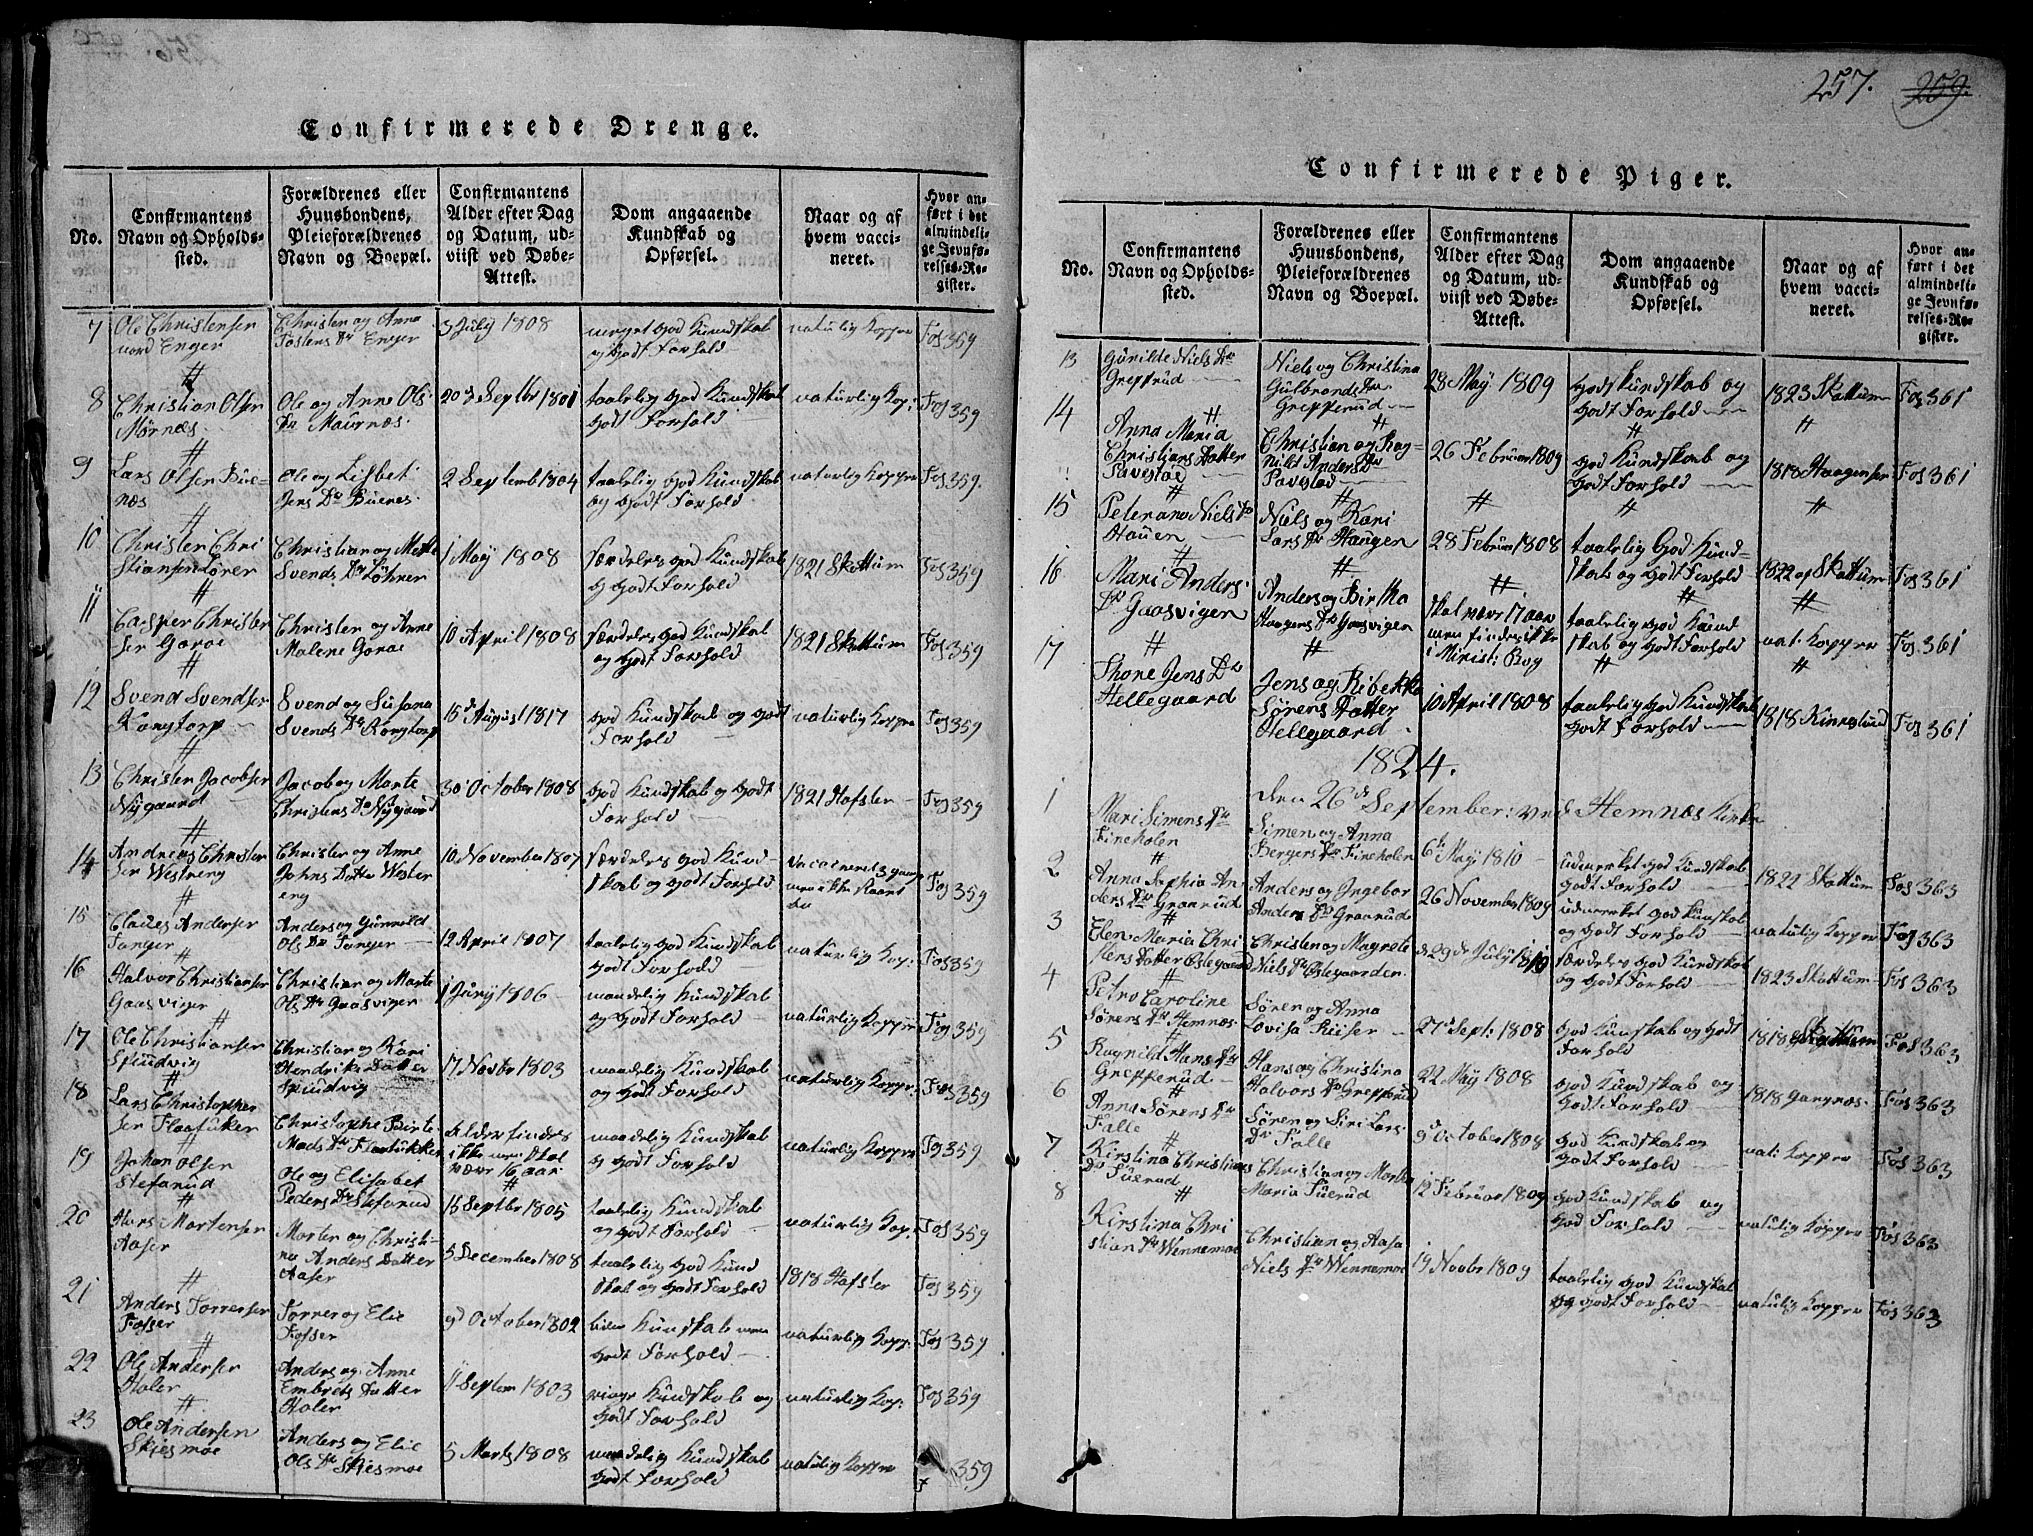 Confirmerede Drenge.
No.
Confirmantens
Navn og Opholds-
sted.
Forældrenes eller
Huusbondens,
Pleieforældrenes
Navn og Boepæl.
Confirmantens
Alder efter Dag
og Datum, ud-
viist ved Døbe-
Attest.
Dom angaaende
Kundskab og
Opførsel.
Naar og af
hvem vacci-
neret.
Hvor an-
ført i det
almindeli-
ge Jevnfø-
relses-Re-
gister.
7
Ole Christensen
nord Enger
Christen og Anna
Tostens Dr Enger
3 July 1808
meget god Kundskab
og Godt Forhold
naturlig Kopper
Fos 359
8
Christian Olsen
Mørnæs
Ole og Anne Ols
Dr Maurnæs
20d Septbr 1801
taalelig god Kundskab
Godt Forhold
naturlig Kop:
Fos 359
9
Lars Olsen Bue-
næs
Ole og Lisbet
Jens Dr Buenes
2 Septemb 1804
taalelig god Kundskab
og Godt Forhold
naturlig Kopper
Fos 359.
10
Christen Chri
stiansen Lører
Christian og Mette
Svends Dr Løhner
1 May 1808
særdeles god Kundskab
og Godt Forhold
1821 Skattum
Fos 359
11
Casper Christen
sen Garae
Christen og Anne
Malene Garae
10 April 1808
særdeles god Kundskab
og Godt Forhold
1821 Skattum
Fos 359
12
Svend Svendsen
Kongtorp
Svend og Susana
Svends Dr Kongtorp
16d August 1817
god Kundskab og Godt
Forhold
naturlig Kopper
Fos 359
13
Christen Jacobsen
Nygaard
Jacob og Marte
Christens Dr Nygaard
30 October 1808
god Kundskab og Godt
Forhold
1821 Hafsten
Fos 359
14
Andreas Christen
sen Westreng
Christen og Anne
Johns Datter Wester
eng
10 November 1807
særdeles god Kund-
skab og Godt Forhold
Fos 359
15
Claues Andersen
Tanger
Anders og Gunnild
Ols Dr Tanger
12 April 1807
taalelig god Kundskab
Godt Forhold
naturlig Kop:
Fos 359
16
Halvor Christiansen
Gaasviger
Christian og Marte
Ols Dr Gaasviger
1 Juny 1806
maadelig Kundskab
og Godt Forhold
naturlig Kopper
Fos 359
17
Ole Christiansen
Spludvig
Christian og Kari
Hendriks Datter
Spludvig
17 Novbr 1803
maadelig Kundskab
og Godt Forhold
naturlig Kopper
Fos 359
18
Lars Christophe
sen Flaatukken
Christophe Birte
Mads Dr Flaatukken
Alder findes
ikke men skal
være 16 aar
maadelig Kundskab
og Godt Forhold
naturlig Kopper
Fos 359
19
Johan Olsen
Stefarud
Ole og Elisabet
Peders Dr Stefarud
16 Septbr 1805
taalelig Kundskab
og Godt Forhold
naturlig Kop:
Fos 359
20
Hans Mortensen
Aaser
Morten og Christi-
na Anders Datter
Aaser
5 December 1808
taalelig god Kund
skab og Godt Forhold
1818 Hafsten
Fos 359
21
Anders Torresen
Fosser
Torre og Elie
Fosser
9d October 1802
liden Kundskab men
Godt Forhold
naturlig Kopp:
Fos 359
22
Ole Andersen
Holer
Anders og Anne
Embrets Datter
Holer
11 Septem 1803
ringe Kundskab og
Godt Forhold
naturlig Kop:
Fos 359
23
Ole Andersen
Skjesmoe
Anders og Elie
Ols Dr Skjesmoe
5 Marts 1808
maadelig Kundskab
Godt Forhold
naturlig Kopper
359
257. 259.
Confirmerede Piger.
No.
Confirmantens
Navn og Opholds-
sted.
Forældrenes eller
Huusbondens,
Pleieforældrenes
Navn og Boepæl.
Confirmantens
Alder efter Dag
og Datum, ud-
viist ved Døbe-
Attest.
Dom angaaende
Kundskab og
Opførsel.
Naar og af
hvem vacci-
neret.
Hvor an-
ført i det
almindeli-
ge Jevnfø-
relses-Re-
gister.
13
Gunilde Niels Dr
Grepprud
Niels og Christina
Gulbrands Dr
Grepperud
28 May 1809
God Kundskab og
Godt Forhold
1823 Skattum
Fos 361
14
Anna Maria
Christians Datter
Pavestad
Christian og Rag-
nild Anders Dr
Pavestad
26 Februar 1809
god Kundskab og
Godt Forhold
1818 Haagensen
Fos 361
15
Peterano Niels Dr
Hauen
Niels og Kari
Lars Dr Haugen
28 Februar 1808
taalelig God Kund-
skab og Godt Forhold
1822 af Skattum
Fos 361
16
Mari Anders
Dr Gaasvigen
Anders og Birthe
Haagens Dr Gaasvigen
skal være 17 aar
men findes ikke
i Minist: Bog
taalelig God Kund
skab og Godt Forhold
nat: Kopper
Fos 361
17
Thone Jens Dr
Hellegaard
Jens og Ribekka
Sørens Datter
Hellegaard
10 April 1808
taalelig god Kundskab
Godt Forhold
1818 Kinneslund
Fos 361
1824.
den 26de September: ved Hemnæs Kirke
1
Mari Simens Dr
Fineholen
Simen og Anna
Bergers Dr Fineholen
6d May 1810
udmerket god Kundskab
Godt Forhold
1822 Skattum
Fos 363
2
Anna Sophia An-
ders Dr Graarud
Anders og Ingebor
Anders Dr Graarud
26 November 1809
udmerket god Kundskab
og Godt Forhold
naturlig Kopper
Fos 363
3
Elen Maria Chri
stens Datter Østegaard
Christen og Magrete
Niels Dr Østegaarden
d 29de July 1810
særdeles god Kundskab
og Godt Forhold
1823 Skattum
Fos 363
4
Petro Caroline
Sørens Dr Hemnæs
Søren og Anna
Lovisa Ruiser
27d Sept: 1808
god Kundskab og Godt
Forhold
1818 Skattum
Fos 363
5
Ragnild Hans Dr
Grepperud
Hans og Christina
Halvors Dr Grepperud
22 May 1808
god Kundskab og
Godt Forhold
1818 Gangnæs
Fos 363
6
Anna Sørens Dr
Falle
Søren og Siri Lars
Dr Falle
9d October 1808
god Kundskab og
Godt Forhold
nat: Kopper
Fos 363
7
Kirstina Christians
Dr Tuerud
Christian og Martha
Maria Tuerud
12 Februar 1809
god Kundskab og
God Forhold
naturlig Kopper
Fos 363
8
Kirstina Chri
stian Dr Winnemoe
Christian og Aasa
Niels Dr Winnemoe
19 Novbr 1809
taalelig god Kundskab
og Godt Forhold
naturlig Kopper
Fos 363